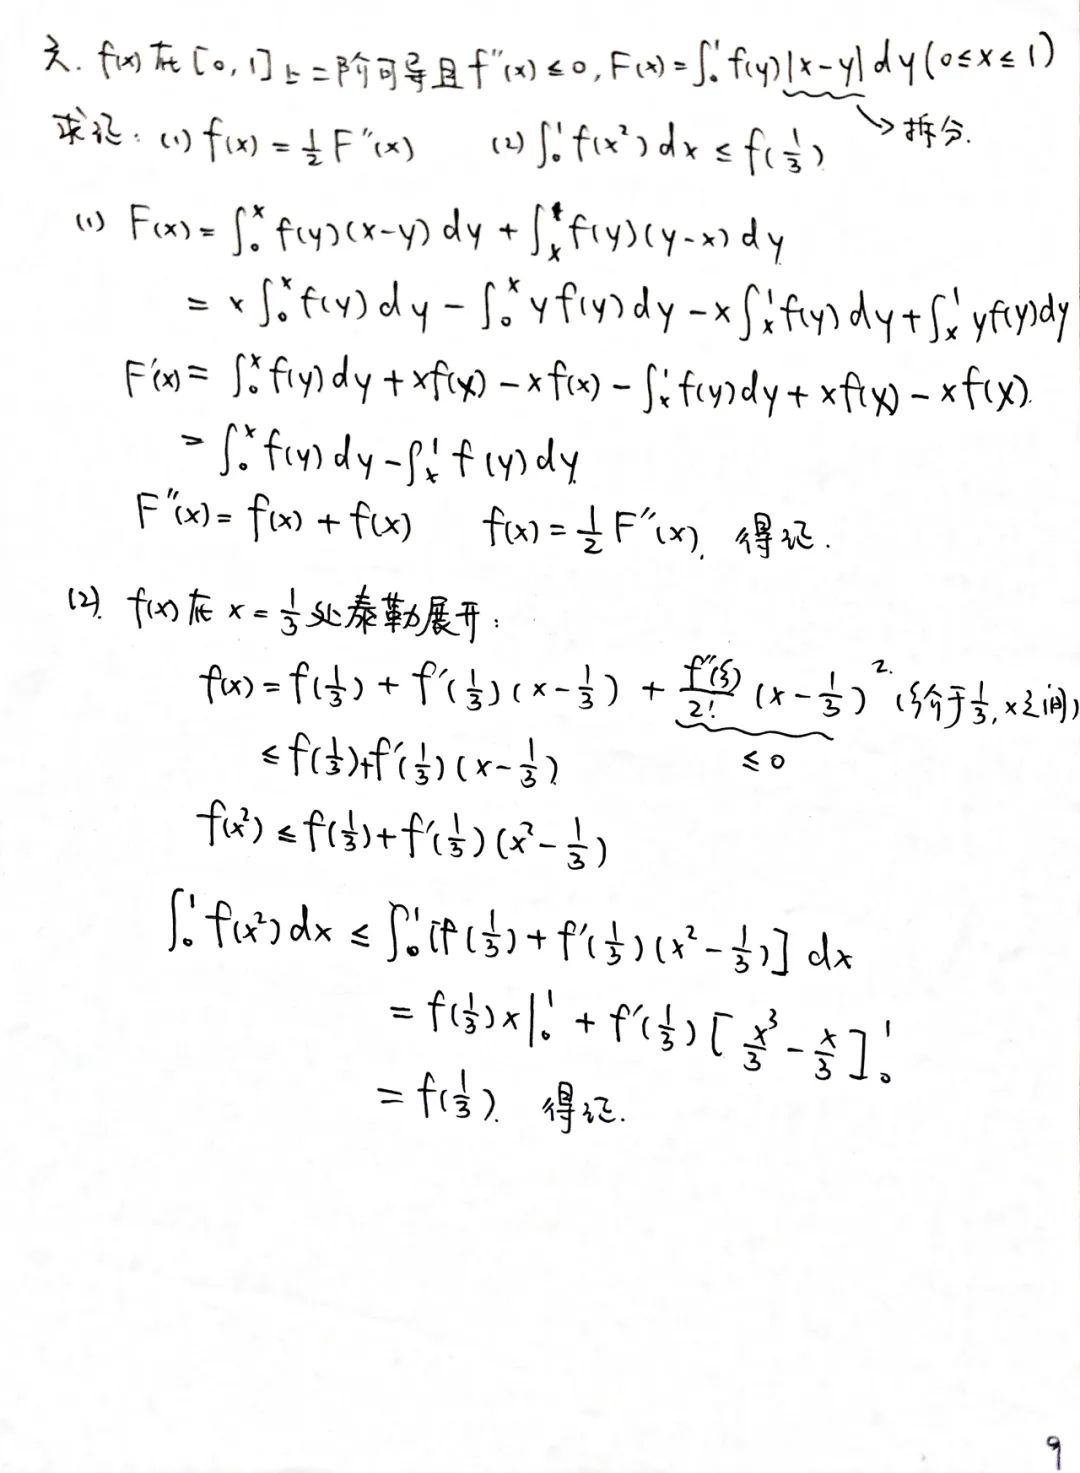 六. f(x)在[0,1]上二阶可导且f''(x)≤0, F(x)=∫₀¹f(y)|x-y|dy(0≤x≤1)
→拆分.
求证: (1) f(x)=1/2 F''(x) (2) ∫₀¹f(x²)dx≤f(1/3)
(1) F(x)=∫₀ˣf(y)(x-y)dy+∫ₓ¹f(y)(y-x)dy
=x∫₀ˣf(y)dy-∫₀ˣyf(y)dy-x∫ₓ¹f(y)dy+∫ₓ¹yf(y)dy
F'(x)=∫₀ˣf(y)dy+xf(x)-xf(x)-∫ₓ¹f(y)dy+xf(x)-xf(x).
=∫₀ˣf(y)dy-∫ₓ¹f(y)dy
F''(x)=f(x)+f(x) f(x)=1/2 F''(x). 得证.
(2). f(x)在x=1/3处泰勒展开:
f(x)=f(1/3)+f'(1/3)(x-1/3)+f''(ξ)/2!(x-1/3)².(ξ介于1/3,x之间)
≤f(1/3)+f'(1/3)(x-1/3) ≤0
f(x²)≤f(1/3)+f'(1/3)(x²-1/3)
∫₀¹f(x²)dx≤∫₀¹[f(1/3)+f'(1/3)(x²-1/3)]dx
=f(1/3)x|₀¹+f'(1/3)[x³/3-x/3]₀¹
=f(1/3). 得证.
9